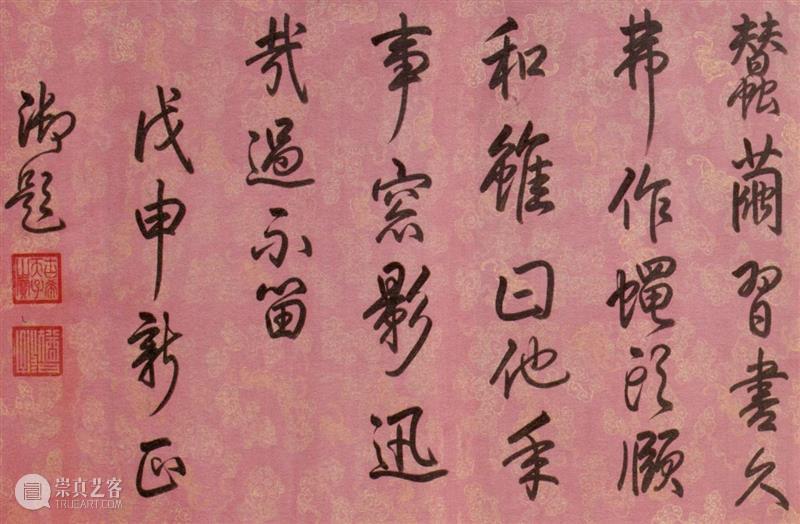 蠶繭習書久
弗作蠅頭頗
和雖曰他年
事窓影迅
哉過不留
戊申新正
御題
崇真艺客
TRUEART.COM